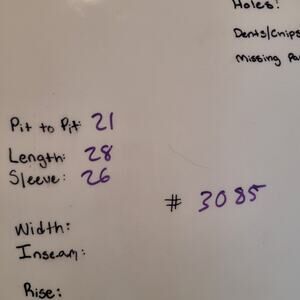 Holes:
Dents/Chips
Missing Pa
Pit to Pit: 21
Length: 28
Sleeve: 26
# 3085
Width:
Inseam:
Rise: